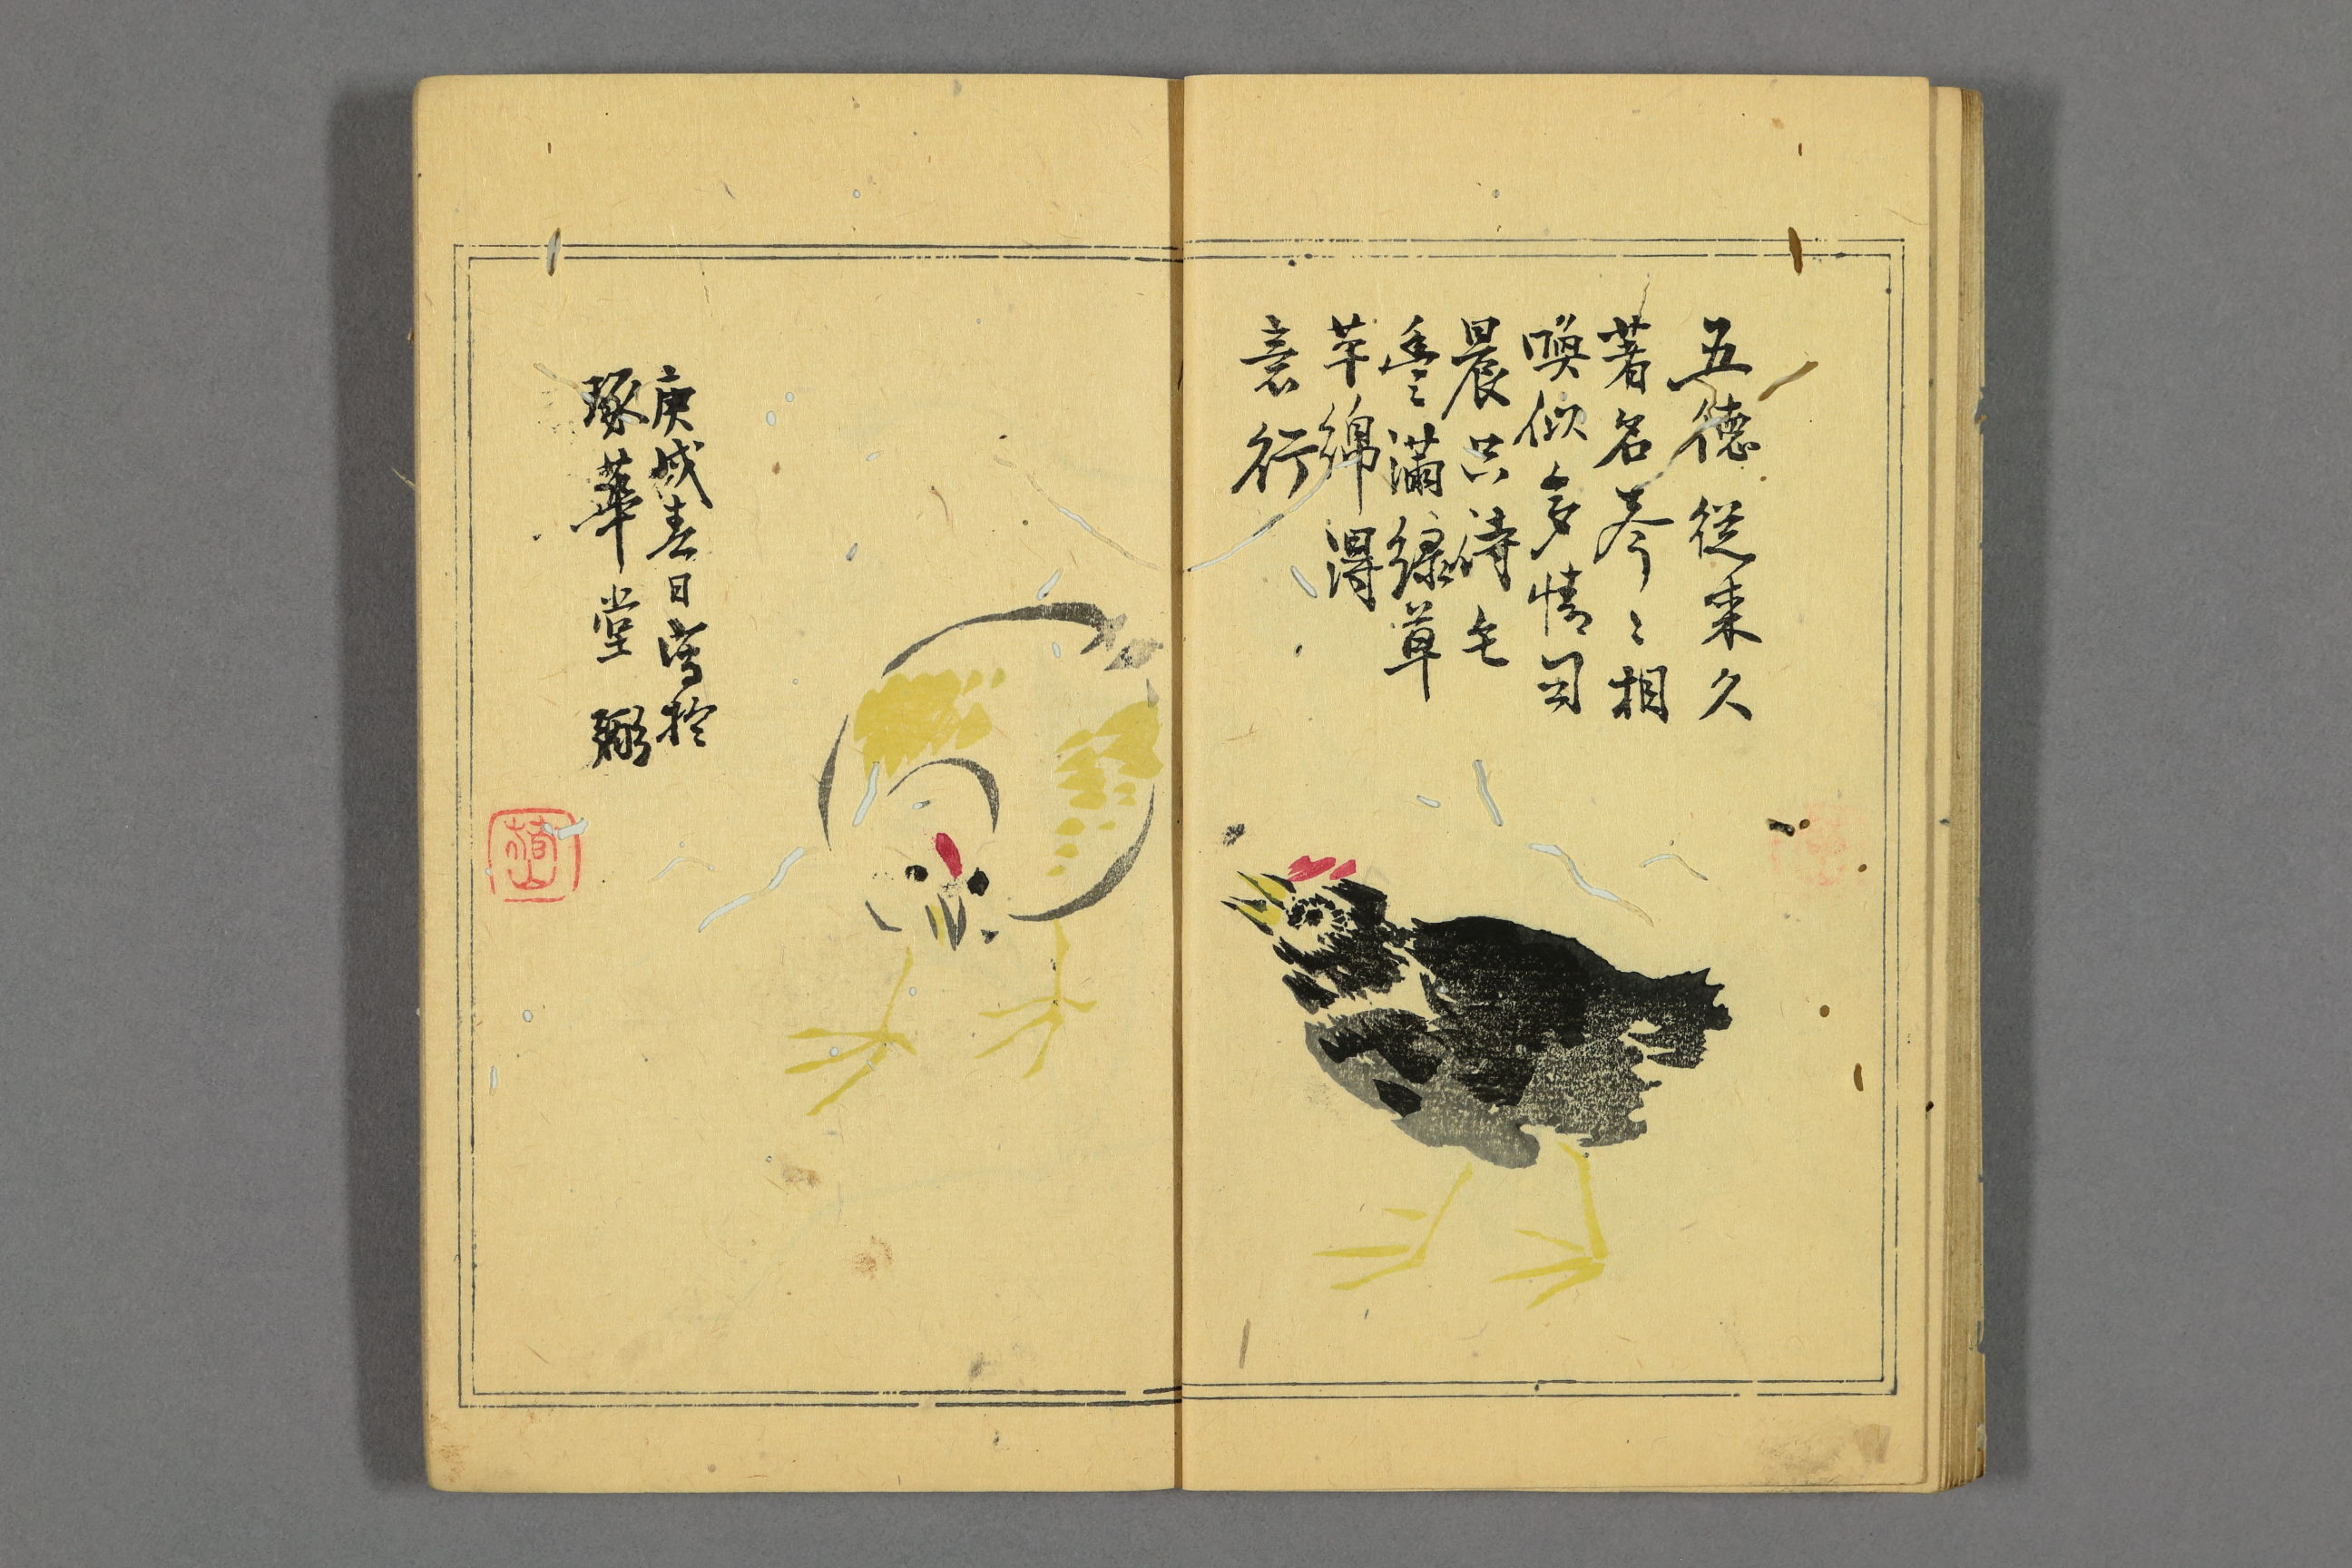 五德從来久
著名卺〻相
喚似多情司
晨只待毛
豊〻滿綠草
芊綿得
意行
庚戌春日寫於
琢華堂 㢸